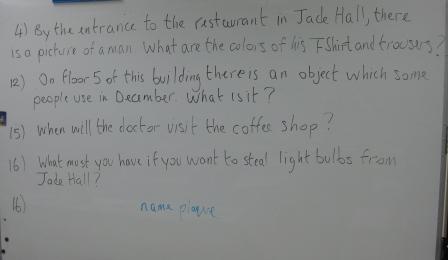 4) By the entrance to the restaurant in Jade Hall, there
is a picture of a man. What are the colors of his T-Shirt and trousers?
12) On floor 5 of this building there is an object which some
people use in December. What is it?
15) When will the doctor visit the coffee shop?
16) What must you have if you want to steal light bulbs from
Jade Hall?
16)
name plaque